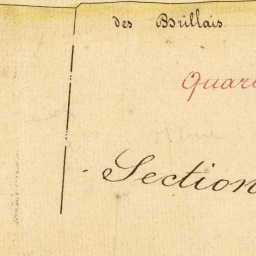 des Brillais
Quar
Section